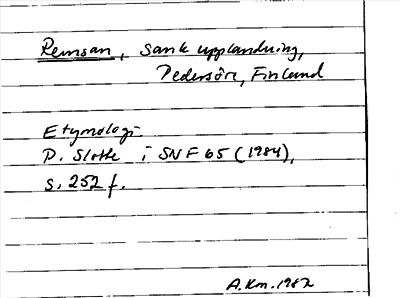 Remsan, sank upplandning,
Pedersöre, Finland
Etymologi
P. Slotte i SNF 65 (1984),
s. 252 f.
A.Km. 1987